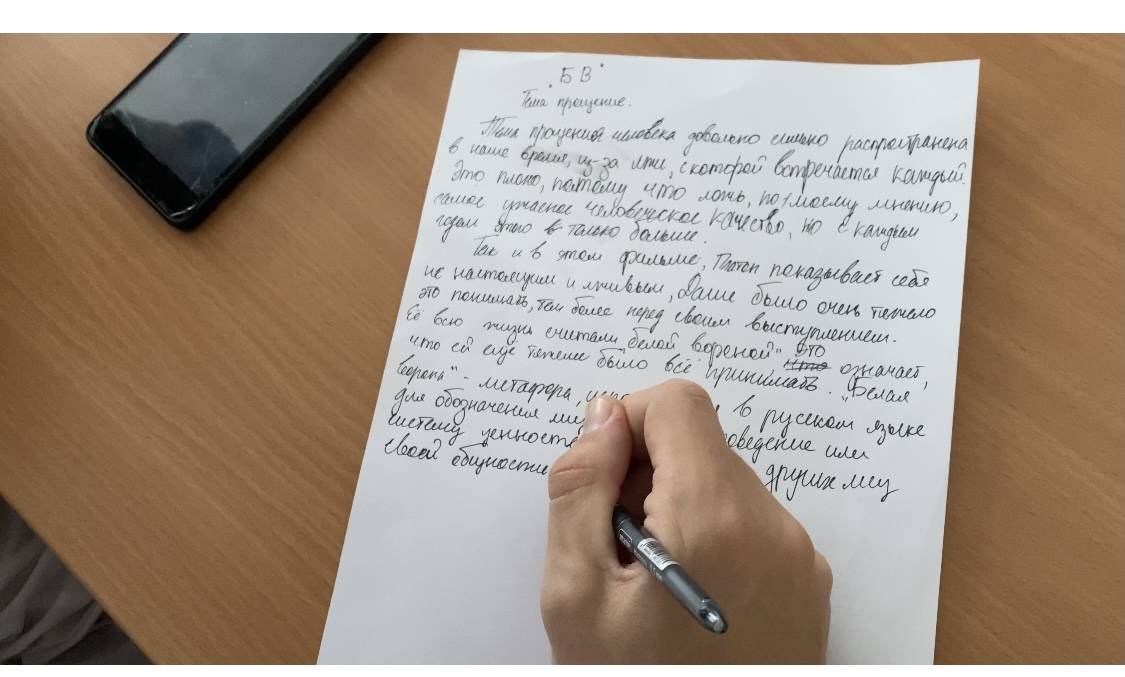 "БВ"
Тема прощение.
Тема прощения человека довольно сильно распространена
в наше время, из-за лжи, с которой встречается каждый.
Это плохо, поэтому что ложь, по моему мнению,
самое ужасное человеческое качество, но с каждым
годом этого в только больше.
Так и в этом фильме, Платон показывает себя
не настоящим и лживым, Даше было очень тяжело
это понимать, тем более перед своим выступлением.
Её всю жизнь считали белой вороной" это
означает,
что ей ещё тяжелее было всё принимать. "Белая
ворона" - метафора, в русском языке
для обозначения
систему поведение или
своей общности других